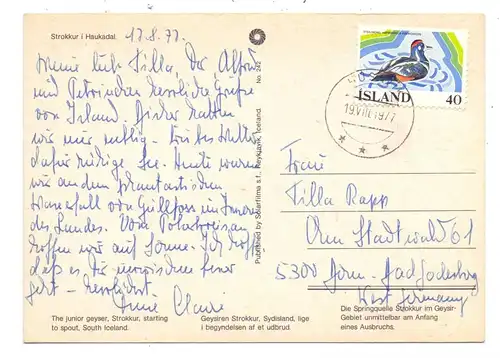 Strokkur i Haukadal.
17.8.77.
Meine liebe Tilla, Dir, Alfred
und Petra herzliche Grüße
von Island. Leider hatten
wir nur
dafür ruhige See. Heute waren
wir an dem phantastischen
Wasserfall von Gullfoss im Innern
des Landes. Vom Polarkreis an
hoffen wir auf Sonne. Ich hoffe,
daß es Dir inzwischen besser
geht - herzlichst
Deine
The junior geyser, Strokkur, starting
to spout, South Iceland.
Geysiren Strokkur, Sydisland, lige
i begyndelsen af et udbrud.
Die Springquelle Strokkur im Geysir-
Gebiet unmittelbar am Anfang
eines Ausbruchs.
Published by Solarfilma s.f., Reykjavik, Iceland.
ÍSLAND
40
19.VIII.1977
Frau
Tilla Rapp
Am Stadtwald 61
5300 Bonn-Bad Godesberg
West Germany